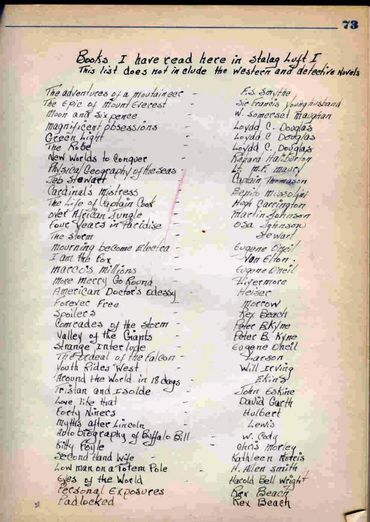 73
Books I have read here in Stalag Luft I
This list does not include the Western and detective Novels
The adventures of a Mountaineer - F.S. Smythe
The Epic of Mount Everest - Sir Francis Younghusband
Moon and Six pence - W. Somerset Maughan
Magnificent Obsessions - Loydd C. Douglas
Green Light - Loydd C Douglas
The Robe - Loydd C. Douglas
New Worlds to Conquer - Richard Haliburton
Physical Geography of the seas - Lt. M.F. Maury
Job Stewart - Captain Thomason
Cardinal's Mistress - Benito Mussolini
The Life of Captain Cook - Hugh Carrington
over African Jungle - Martin Johnson
Four Years in Paridise - Osa Johnson
The Storm - Stewart
Mourning become Electra - Eugene O'neil
I am the fox - Van Etton
Marco's millions - Eugene O'neil
More Merry Go Round - Livermore
American Doctor's Odessy - Heiser
Forever Free - Morrow
Spoilers - Rex Beach
Comrades of the Storm - Peter B Kyne
Valley of the Giants - Peter B. Kyne
Strange Interlude - Eugene Oneil
The Ordeal of the Falcon - Larson
Youth Rides West - Will Irving
Around the World in 18 days - Ekins
Tristan and Isolde - John Erskine
Love, like that - David Garth
Forty Niners - Hulbert
Myths after Lincoln - Lewis
Autobiography of Buffalo Bill - W. Cody
Kitty Foyle - Chris Morley
Second Hand Wife - Kathleen Norris
Low man on a Totem Pole - H. Allen Smith
Eyes of the World - Harold Bell Wright
Personal Exposures - Rex Beach
Padlocked - Rex Beach